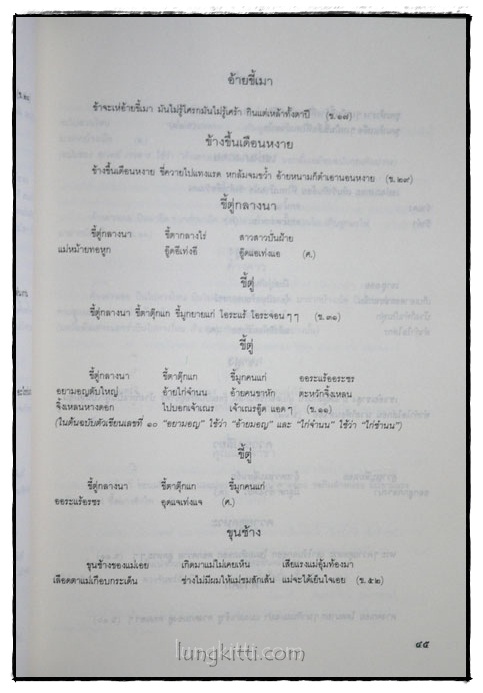 อ้ายขี้เมา
ข้าจะเห่อ้ายขี้เมา มันไม่รู้โศรกมันไม่รู้เศร้า กินแต่เหล้าทั้งตาปี (ข.๑๗)
ช้างขึ้นเดือนหงาย
ช้างขึ้นเดือนหงาย ขี่ควายไปแทงแรด หกล้มจมขวั้า อ้ายหนามก็ตำเอานอนหงาย (ข.๒๙)
ขี้ตู่กลางนา
ขี้ตู่กลางนา ขี้ตากลางไร่ สาวสาวปั่นฝ้าย
แม่หม้ายทอหูก อู๊ดอี๊เท่งอี อู๊ดแอเท่งแอ (ศ.)
ขี้ตู่
ขี้ตู่กลางนา ขี้ตาตุ๊กแก ขี้มูกยายแก่ โอระแร้ โอระจ่อน ๆ ๆ (ข.๓๑)
ขี้ตู่
ขี้ตู่กลางนา ขี้ตาตุ๊กแก ขี้มูกคนแก่ ออระแร้ออระชร
อยามอญตับใหญ่ อ้ายไก่จำนน อ้ายคนขาหัก ตะหวักจิ้งเหลน
จิ้งเหลนหางดอก ไปบอกเจ้าเณร เจ้าเณรอู๊ด แอด ๆ (ข.๑๑)
(ในต้นฉบับตัวเขียนเลขที่ ๑๐ "อยามอญ" ใช้ว่า "อ้ายมอญ" และ "ไก่จำนน" ใช้ว่า "ไก่ชำนน")
ขี้ตู่
ขี้ตู่กลางนา ขี้ตาตุ๊กแก ขี้มูกคนแก่
ออระแร้อรชร อุดแจเท่งแจ (ศ.)
ขุนช้าง
ขุนช้างของแม่เอย เกิดมาแม่ไม่เคยเห็น เสียแรงแม่อุ้มท้องมา
เลือดตาแม่เกือบกระเด็น ช่างไม่มีผมให้แม่ชมสักเส้น แม่จะได้เย็นใจเอย (ข.๕๒)
๔๕
lungkitti.com